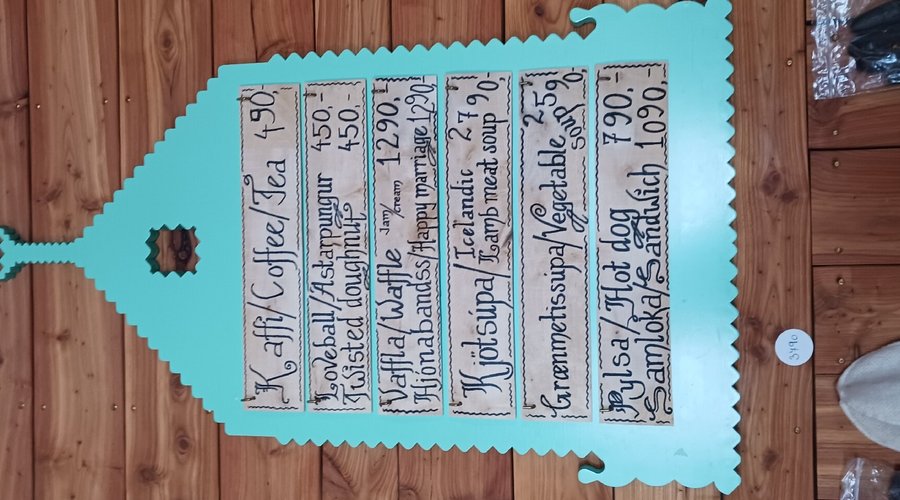 Kaffi/Coffee/Tea 490,-
Loveball/Ástarpungur 450,-
Twisted doughnut 450,-
Vaffla/Waffle Jam/cream 1290,-
Hjónabandss/Happy marriage 1290,-
Kjötsúpa/Icelandic Lamb meat soup 2790,-
Grænmetissúpa/Vegetable soup 2590
Pylsa/Hot dog 790,-
Samloka/Sandwich 1090,-
3490